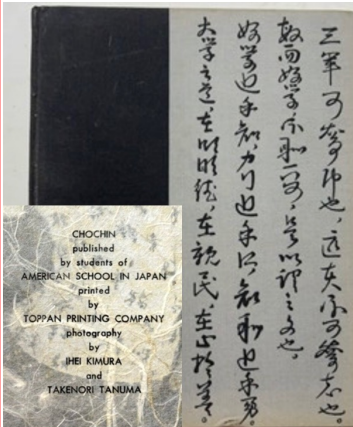 三軍可奪帥也、匹夫不可奪志也。
敏而好学不恥下問、是以謂之文也。
好学近乎知、力行近乎仁、知恥近乎勇。
大学之道、在明明徳、在親民、在止於至善。
CHOCHIN
published
by students of
AMERICAN SCHOOL IN JAPAN
printed
by
TOPPAN PRINTING COMPANY
photography
by
IHEI KIMURA
and
TAKENORI TANUMA